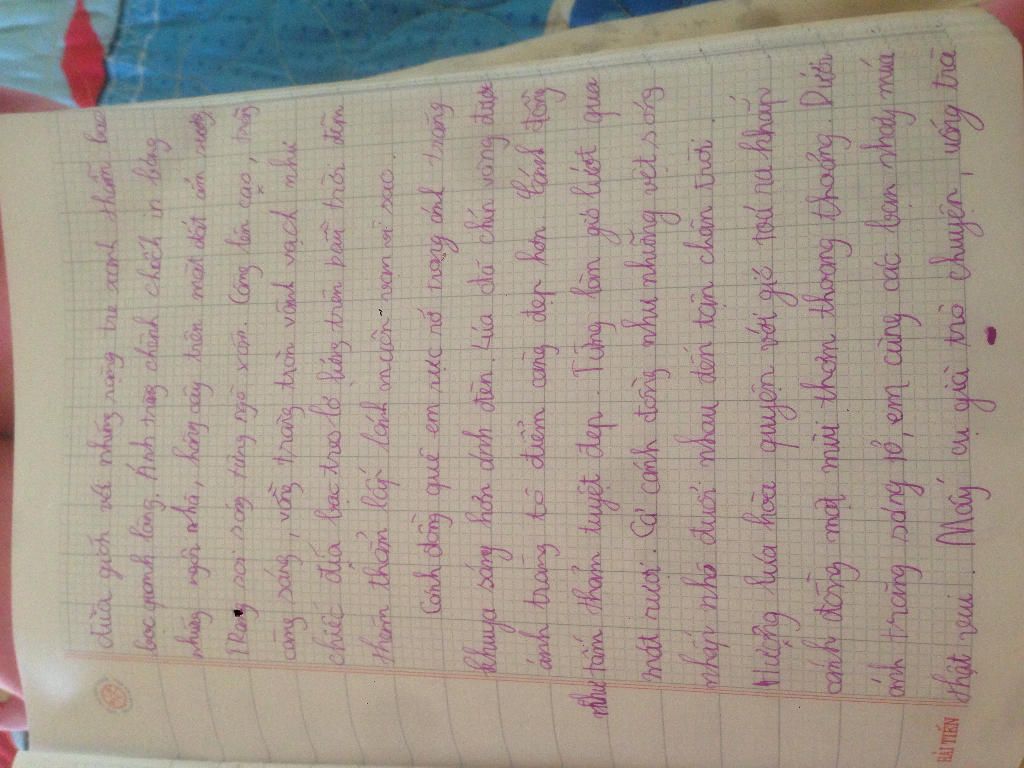 đùa giỡn với những rặng tre xanh thẫm bao
bọc quanh làng. Ánh trăng chênh chếch in bóng
những ngôi nhà, hàng cây trên mặt đất ẩm sương.
Trăng soi sáng từng ngõ xóm. Càng lên cao, trăng
càng sáng, vầng trăng tròn vành vạch như
chiếc đĩa bạc treo lơ lửng trên bầu trời đêm
thăm thẳm lấp lánh muôn vàn vì sao.
Cánh đồng quê em rực rỡ trong ánh trăng
khuya sáng hơn ánh đèn. Lúa đã chín vàng được
ánh trăng tô điểm càng đẹp hơn. Cánh đồng
như tấm thảm tuyệt đẹp. Từng làn gió lướt qua
mát rượi. Cả cánh đồng như những vệt sóng
nhấp nhô đuổi nhau đến tận chân trời.
Hương lúa hòa quyện với gió toả ra khắp
cánh đồng một mùi thơm thoang thoảng. Dưới
ánh trăng sáng tỏ, em cùng các bạn nhảy múa
thật vui. Mấy cụ già trò chuyện, uống trà
HẢI TIẾN